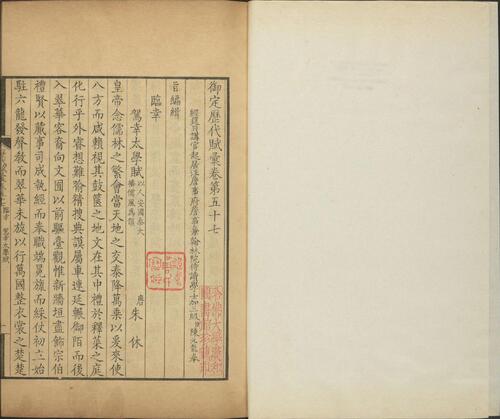 御定歷代賦彙卷第五十七
經筵日講官起居注詹事府詹事兼翰林院侍讀學士加三級臣陳元龍奉
旨編輯
臨幸
駕幸太學賦以人安國泰大
播儒風為韻
唐朱休
皇帝念儒林之繁會當天地之交泰降萬乗以爰來使
八方而咸賴視其鼓篋之地文在其中禮於釋菜之庭
化行乎外睿想難窬精搜典謨屬車連延輾御陌而後
入翠華容裔向文囿以前驅臺觀惟新牆垣盡飾宗伯
禮賢以蕆事司成執經而奉職端冕旒而綵仗初立始
駐六龍發聲教而翠華未旋以行萬國整衣裳之楚楚